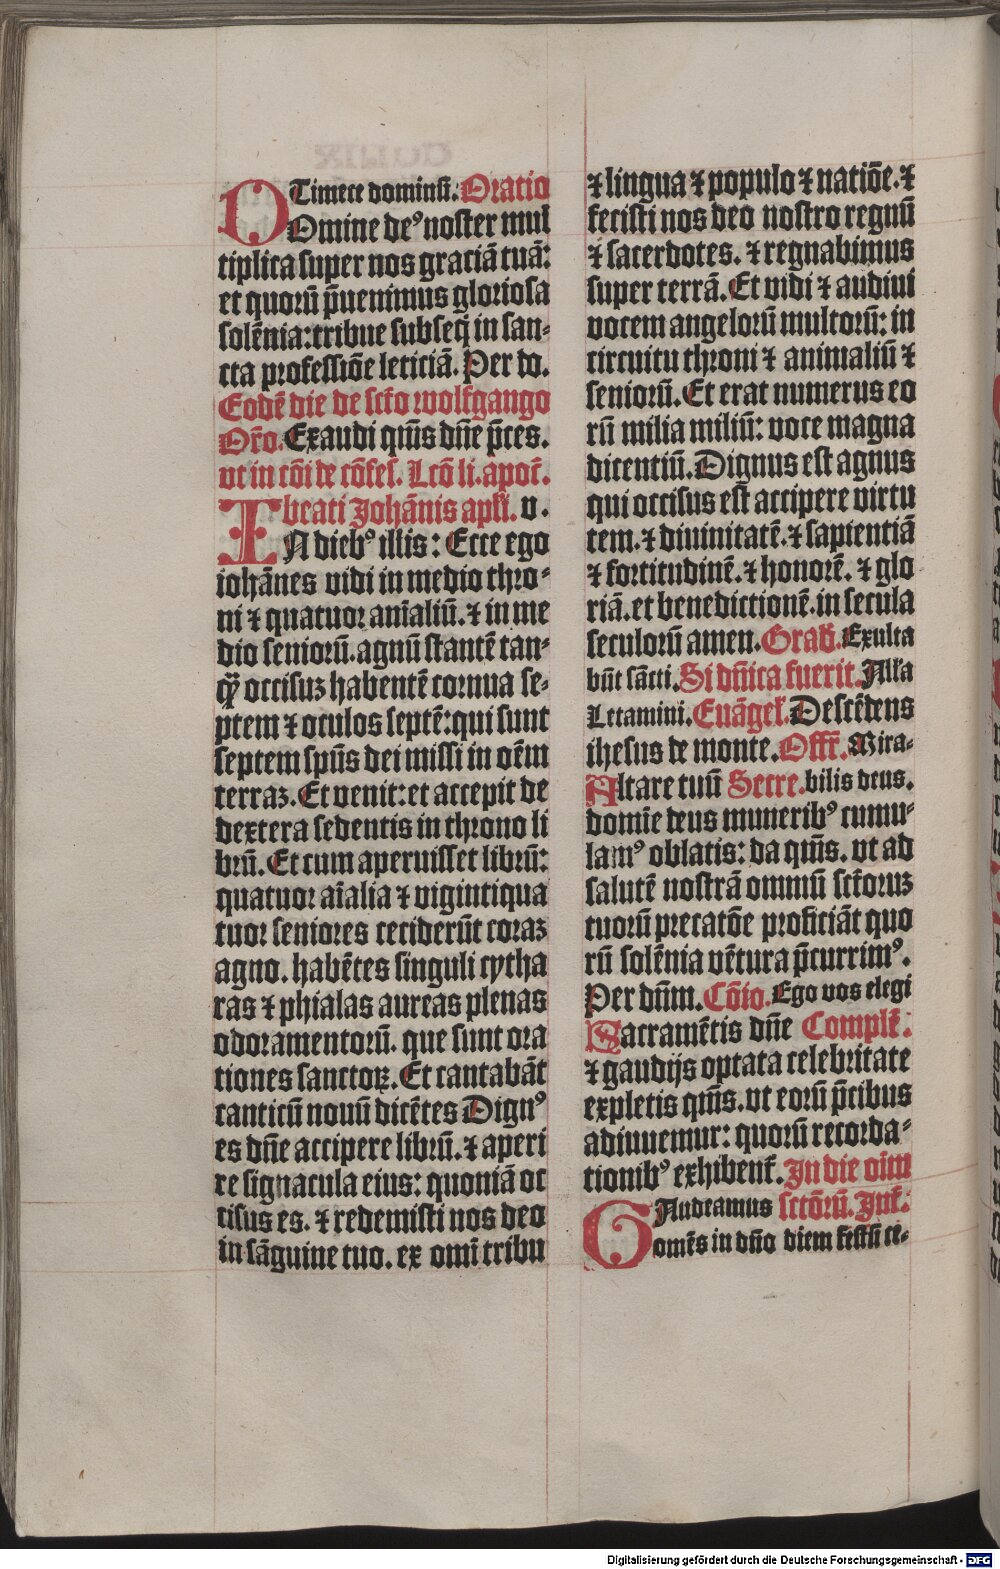 Timete dominū. Oratio
DOmine deꝰ noster mul
tiplica super nos graciā tuā:
et quorū p̄uenimus gloriosa
solēnia: tribue subseq̄ in san-
cta professiōe leticiā. Per do.
Eodē die de sct̄o wolfgango
Or̄o. Exaudi qm̄s dn̄e p̄ces.
vt in cōi de cōfes. Lcō li. apoc̄.
beati Johānis apl̄i. v.
IN diebꝰ illis: Ecce ego
iohānes vidi in medio thro-
ni ⁊ quatuor aīaliū. ⁊ in me
dio seniorū. agnū stantē tan-
qȝ occisuꝫ habentē cornua se-
ptem ⁊ oculos septē: qui sunt
septem spūs dei missi in oēm
terraꝫ. Et venit: et accepit de
dextera sedentis in throno li
brū. Et cum aperuisset librū:
quatuor aīalia ⁊ vigintiqua
tuor seniores ceciderūt coraꝫ
agno. habētes singuli cytha
ras ⁊ phialas aureas plenas
odoramentorū. que sunt ora
tiones sanctoꝝ. Et cantabāt
canticū nouū dicētes Dignꝰ
es dn̄e accipere librū. ⁊ aperi
re signacula eius: quoniā oc
cisus es. ⁊ redemisti nos deo
in sāguine tuo. ex omī tribu
⁊ lingua ⁊ populo ⁊ natiōe. ⁊
fecisti nos deo nostro regnū
⁊ sacerdotes. ⁊ regnabimus
super terrā. Et vidi ⁊ audiui
vocem angelorū multorū: in
circuitu throni ⁊ animaliū ⁊
seniorū. Et erat numerus eo
rū milia miliū: voce magna
dicentiū. Dignus est agnus
qui occisus est accipere virtu
tem. ⁊ diuinitatē. ⁊ sapientiā
⁊ fortitudinē. ⁊ honorē. ⁊ glo
riā. et benedictionē. in secula
seculorū amen. Grad̄. Exulta
būt sācti. Si dn̄ica fuerit. Alla
Letamini. Euāgel̄. Descēdens
ihesus de monte. Offr̄. Mira-
Altare tuū Secre. bilis deus.
domīe deus muneribꝰ cumu-
lamꝰ oblatis: da qm̄s. vt ad
salutē nostrā omniū sct̄oruꝫ
tuorū precatōe proficiāt quo
rū solēnia vētura p̄currimꝰ.
Per dn̄m. Cōio. Ego vos elegi
Sacramētis dn̄e Complē.
⁊ gaudijs optata celebritate
expletis qm̄s. vt eorū p̄cibus
adiuuemur: quorū recorda-
tionibꝰ exhibent̄. In die oīm
GAudeamus sctōrū. Int̄.
omēs in dn̄o diem festū ce-
Digitalisierung gefördert durch die Deutsche Forschungsgemeinschaft - DFG